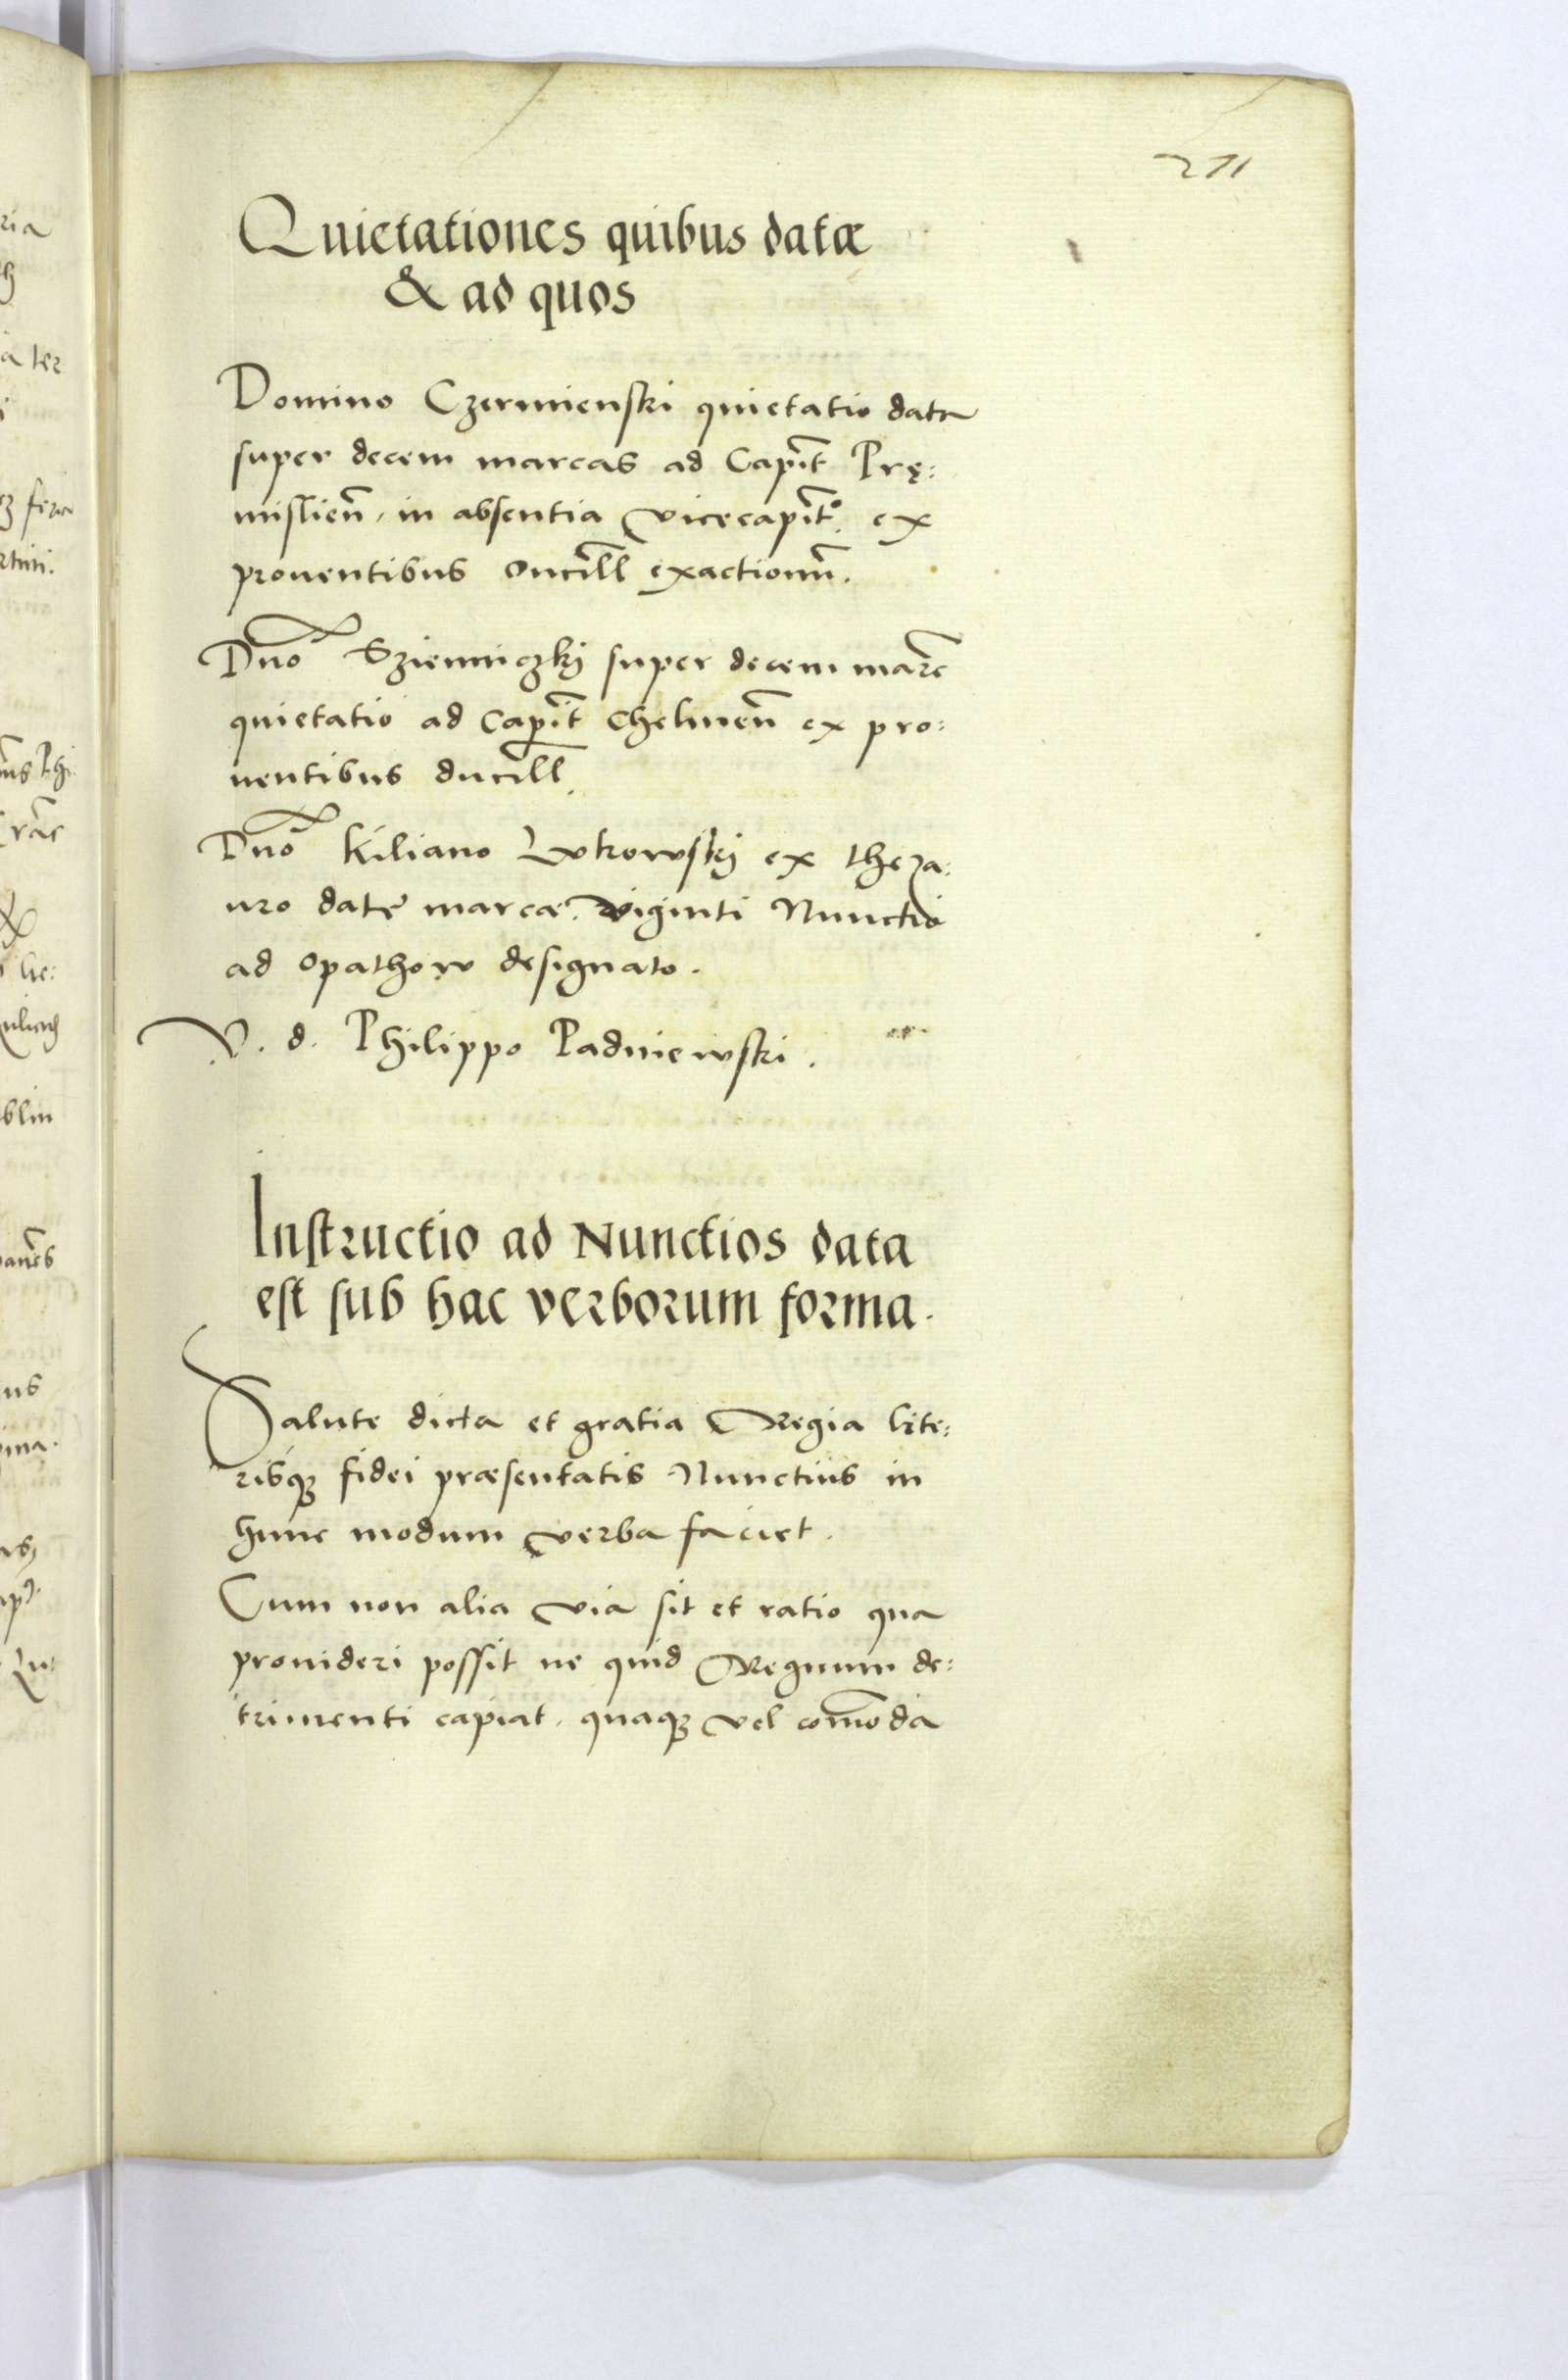 271
Quietationes quibus datæ
& ad quos
Domino Czermienski quietatio data
super decem marcas ad Capit̃ Prę:
mislien̄, in absentia vicecapit̃° ex
prouentibus ducill exactionū.
Dno Sziemiczkij super decem marc̃
quietatio ad Capit̃ Chelmen̄ ex pro:
uentibus ducill
Dno Kiliano Lvkowskij ex theza:
uro datę marcæ viginti Nunctio
ad Opathow designato.
V. d. Philippo Padniewski.
Instructio ad Nunctios data
est sub hac verborum forma.
Salute dicta et gratia Regia lite:
risq; fidei præsentatis Nunctius in
hunc modum verba faciet.
Cum non alia via sit et ratio qua
prouideri possit ne quid Regnum de:
trimenti capiat, quaq; vel com̄oda